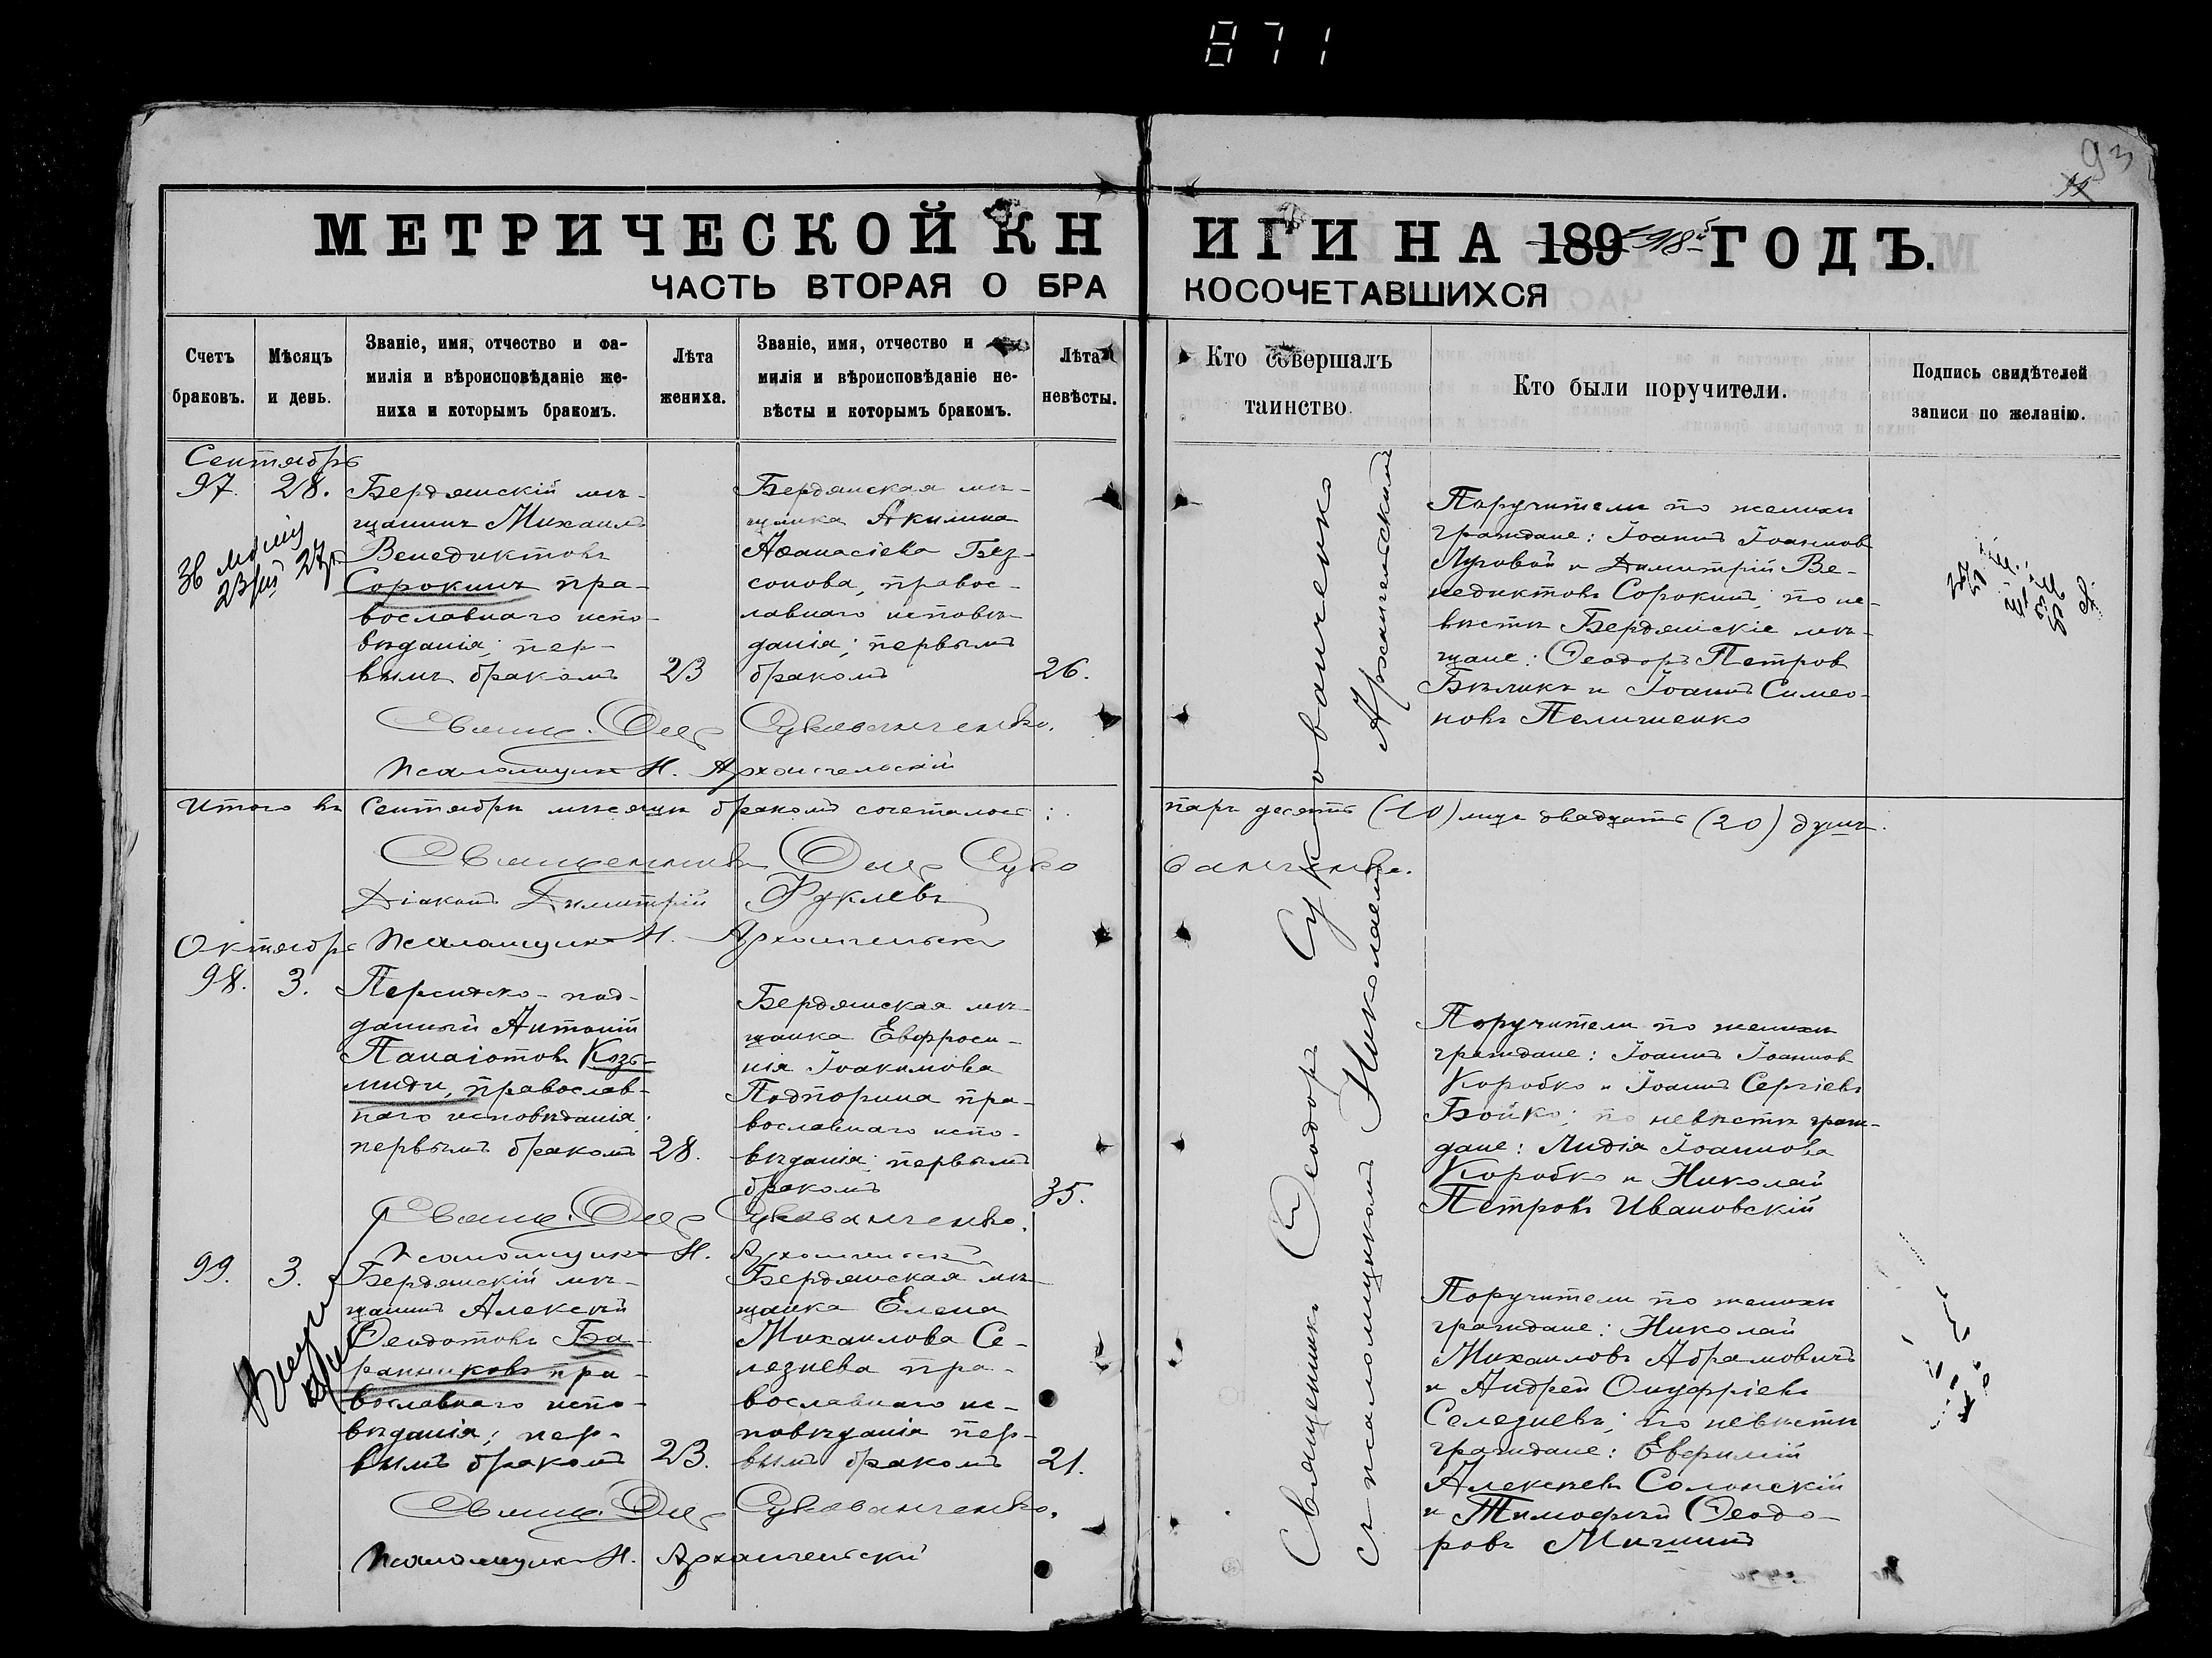 871
93
МЕТРИЧЕСКОЙ КНИГИ НА 1918й ГОДЪ.
ЧАСТЬ ВТОРАЯ О БРАКОСОЧЕТАВШИХСЯ
Счетъ
браковъ.
Мѣсяцъ
и день.
Званіе, имя, отчество и фа-
милія и вѣроисповѣданіе же-
ниха и которымъ бракомъ.
Лѣта
жениха.
Званіе, имя, отчество и
милія и вѣроисповѣданіе не-
вѣсты и которымъ бракомъ.
Лѣта
невѣсты.
Кто совершалъ
таинство.
Кто были поручители.
Подпись свидѣтелей
записи по желанію.
Сентябрь
97. 28.
Бердянскій мѣ-
щанинъ Михаилъ
Венедиктовъ
Сорокинъ пра-
вославнаго испо-
вѣданія; пер-
вымъ бракомъ
23
Бердянская мѣ-
щанка Акилина
Аѳанасіева Без-
сонова, правос-
лавнаго исповѣ-
данія; первымъ
бракомъ
26.
Поручители по женихѣ
граждане: Іоаннъ Іоанновъ
Луговой и Димитрій Ве-
недиктовъ Сорокинъ; по не-
вѣстѣ Бердянскіе мѣ-
щане: Ѳеодоръ Петров
Бѣликъ и Іоаннъ Симео-
новъ Пелишенко
Свящ. Ѳеод Сукованченко.
Псаломщикъ Н. Архангельскій
Итого въ Сентябрѣ мѣсяцѣ бракомъ сочеталось: паръ десять (10) лицъ двадцать (20) душъ.
Священникъ Ѳеод Сукованченко.
Діаконъ Димитрій Руклевъ
Псаломщикъ Н. Архангельскій
Октябрь
98. 3.
Персидско-под-
данный Антоній
Панаіотовъ Козь-
миди, православ-
наго исповѣданія;
первымъ бракомъ
28.
Бердянская мѣ-
щанка Евфроси-
нія Іоакимова
Подпорина пра-
вославнаго испо-
вѣданія; первымъ
бракомъ
35.
Поручители по женихѣ
граждане: Іоаннъ Іоаннов
Коробко и Іоаннъ Сергіевъ
Бойко; по невѣстѣ граж-
дане: Лидія Іоаннова
Коробко и Николай
Петровъ Ивановскій
Свящ. Ѳеод Сукованченко.
Псаломщикъ Н. Архангельскій
99. 3.
Бердянскій мѣ-
щанинъ Алексѣй
Ѳеодотовъ Ба-
ранниковъ пра-
вославнаго испо-
вѣданія; пер-
вымъ бракомъ
23.
Бердянская мѣ-
щанка Елена
Михаилова Се-
лезнева пра-
вославнаго ис-
повѣданія пер-
вымъ бракомъ
21.
Поручители по женихѣ
граждане: Николай
Михаиловъ Абрамовичъ
и Андрей Онуфріевъ
Селезневъ; по невѣстѣ
граждане: Евфимій
Алексѣевъ Солонскій
и Тимофей Ѳеодо-
ровъ Мишинъ
Свящ. Ѳеод Сукованченко.
Псаломщикъ Н. Архангельскій
Священникъ Ѳеодоръ Сукованченко
съ псаломщикомъ Николаемъ Архангельскимъ